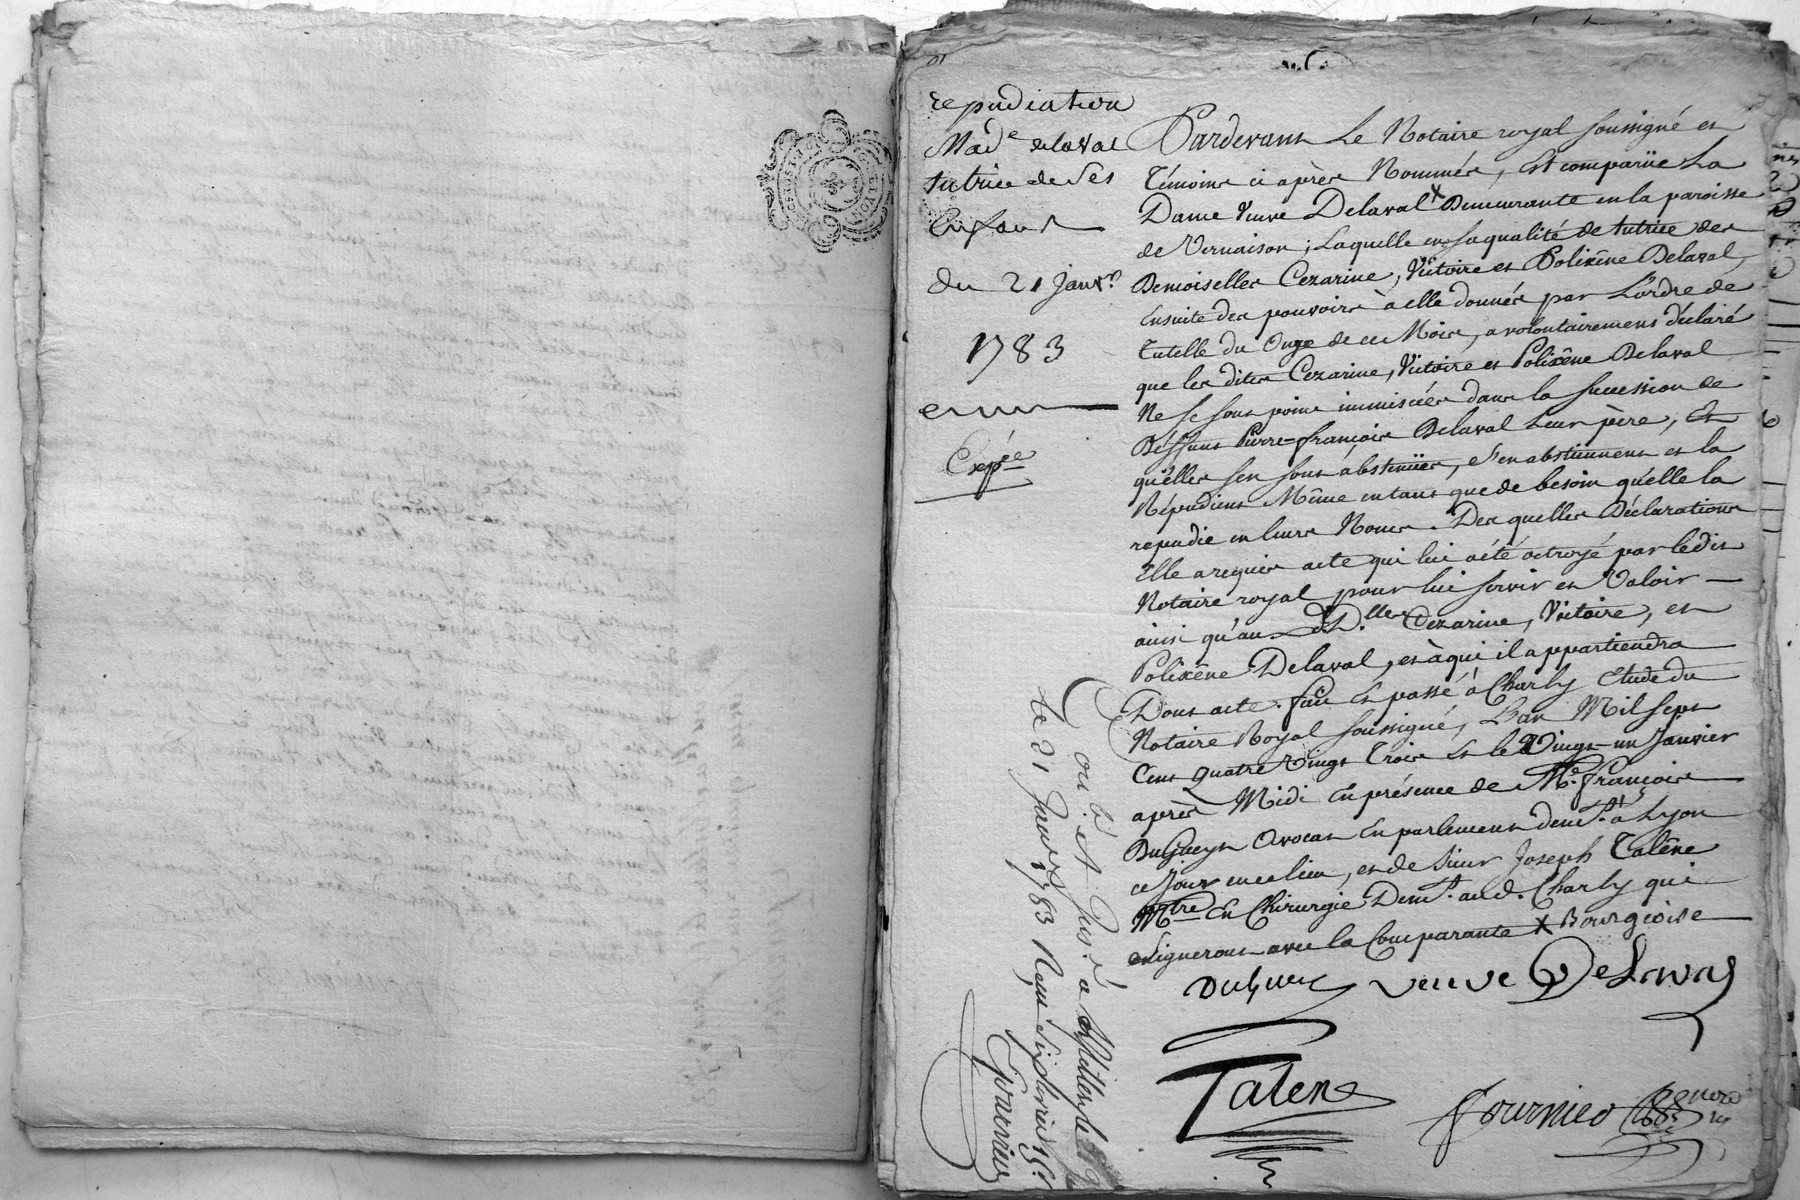 repudiation
Mad.e delaval
tutrice de Ses
Enfants
du 21 janv.r
1783
Exp.ée
Pardevant Le Notaire royal soussigné et
Témoins ci après Nommés, Est comparüe La
Dame Veuve Delaval X Demeurante en la paroisse
de Vernaison ; Laquelle en sa qualité de tutrice des
Demoiselles Cezarine, Victoire et Polixêne Delaval,
Ensuite des pouvoirs à elle donnés par L'ordre de
Tutelle du Onze de ce Mois, a volontairement déclaré
que les dites Cezarine, Victoire et Polixêne Delaval
Ne se sont point immiscées dans la succession de
Déffunt Pierre-françois Delaval Leur père, Et
qu'elles s'en sont abstenües, s'en abstiennent et la
Répudient Même en tant que de besoin qu'elle la
repudie en leurs Noms. Des quelles Déclarations
Elle a requis acte qui lui a été octroyé par ledit
Notaire royal pour lui servir et Valoir
ainsi qu'au D.lles Cezarine, Victoire, et
Polixêne Delaval, et à qui il appartiendra
Dont acte. fait et passé à Charly Etude du
Notaire Royal soussigné, L'an Mil sept
Cent quatre Vingt Trois et le Vingt-un Janvier
après Midi En présence de M.e françois
Duguey Avocat En parlement dem.t à Lyon
ce Jour en ce lieu, et de sieur Joseph Talêne
M.tre En Chirurgie Dem.t aud. Charly qui
signeront avec la Comparante X Bourgeoise
Duguey veuve DeLaval
Talene
fournier
Controllé et Insi.é à Millery le
le 21 Janv.r 1783 Reçu